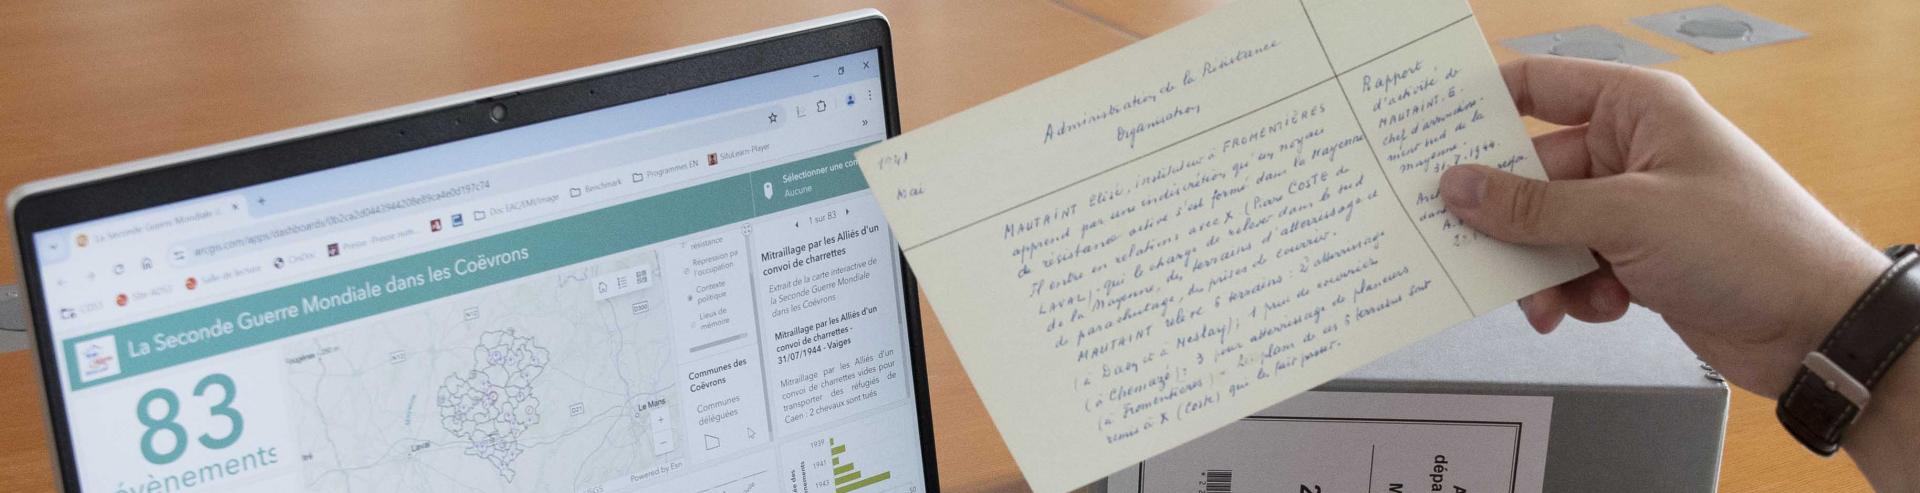 La Seconde Guerre Mondiale d
arcgis.com/apps/dashboards/0b2ca2d0443944208e89ca4e0d197c74
Site AD53
Salle de lecture
OnDoc
Presse
Doc EAC/EMI/Image
Benchmark
Programmes EN
SituLearn-Player
La Seconde Guerre Mondiale dans les Coëvrons
Sélectionner une com
Aucune
83
évènements
N12
N12
D300
D21
Laval
Le Mans
Powered by Esri
résistance
Répression pa
l'occupation
Contexte
politique
Lieux de
mémoire
Communes des
Coëvrons
Communes
déléguées
1 sur 83
Mitraillage par les Alliés d'un
convoi de charrettes
Extrait de la carte interactive de
la Seconde Guerre Mondiale
dans les Coëvrons
Mitraillage par les Alliés d'un
convoi de charrettes -
31/07/1944 - Vaiges
Mitraillage par les Alliés d'un
convoi de charrettes vides pour
transporter des réfugiés de
Caen : 2 chevaux sont tués
1939
1941
1943
50
1941
Mai
Administration de la Résistance
Organisation
MAUTAINT Elisé, instituteur à FROMENTIÈRES
apprend par une indiscrétion qu'un noyau
de résistance active s'est formé dans la Mayenne
Il entre en relations avec X (Pierre COSTE de
LAVAL) qui le charge de relever dans le sud
de la Mayenne, des terrains d'atterrissage et
de parachutage, des prises de courrier.
MAUTAINT relève 6 terrains : 2 atterrissage
(à Daon et à Meslay) ; 1 prise de courrier
(à Chemazé) ; 3 pour atterrissage de planeurs
(à Fromentières) - Les plans de ces 6 terrains sont
remis à X (Coste) qui les fait passer.
Rapport
d'activité de
MAUTAINT. E.
chef d'arrondisse-
ment sud de la
mayenne.
31.7.1944.